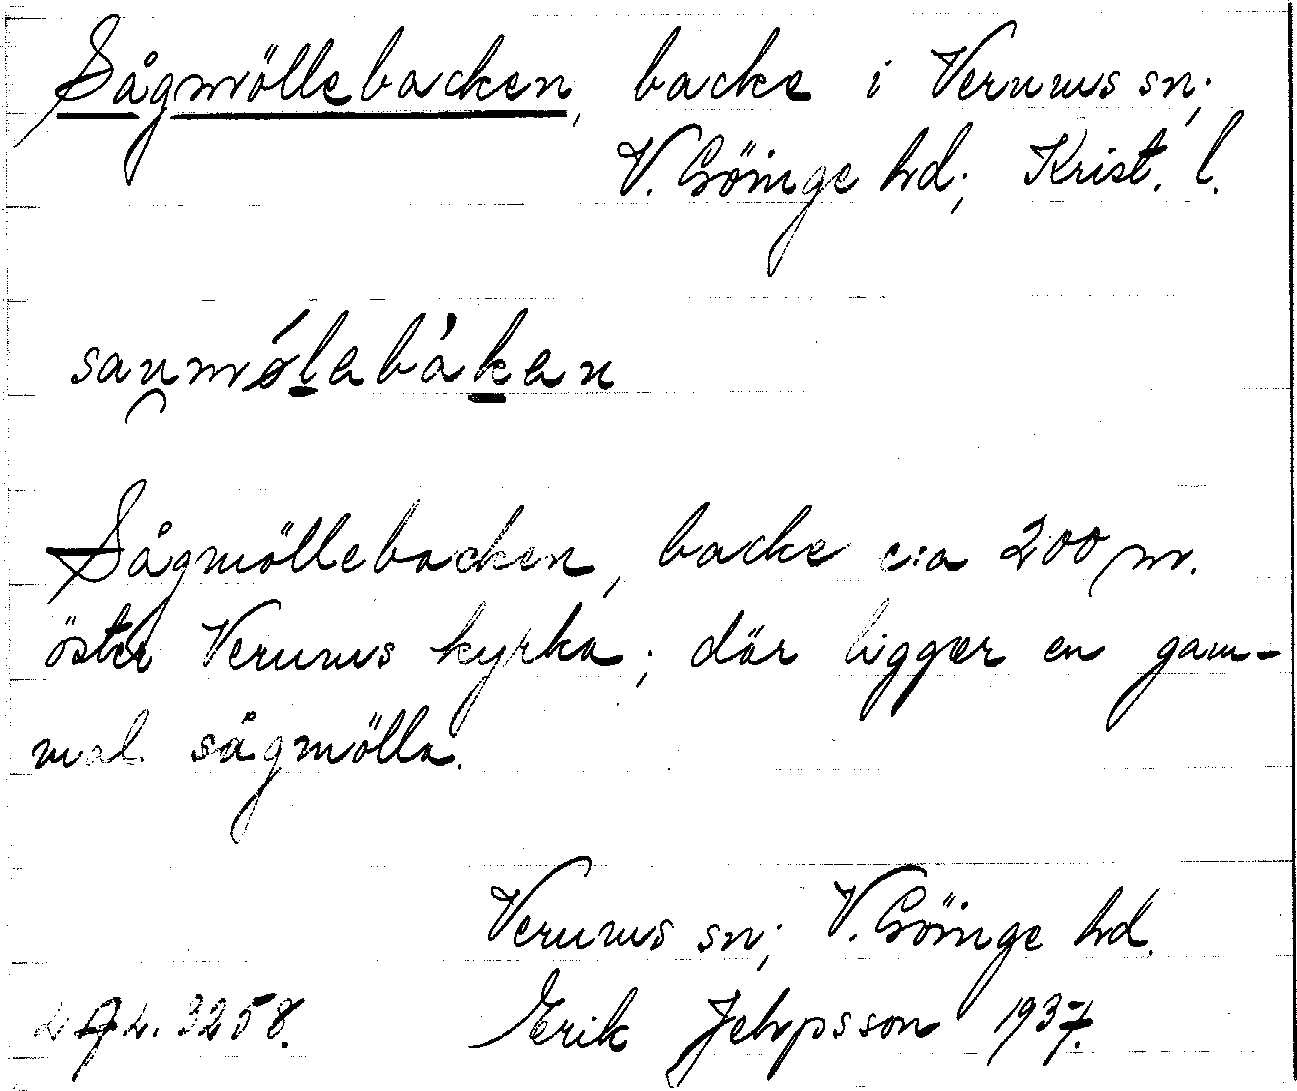 Sågmöllebacken, backe i Verums sn;
V. Göinge hd; Krist. l.
Sågmöllebacken, backe c:a 200 m.
öster Verums kyrka; där ligger en gam-
mal sågmölla.
Verums sn; V. Göinge hd.
3258. Erik Jehpsson 1937.